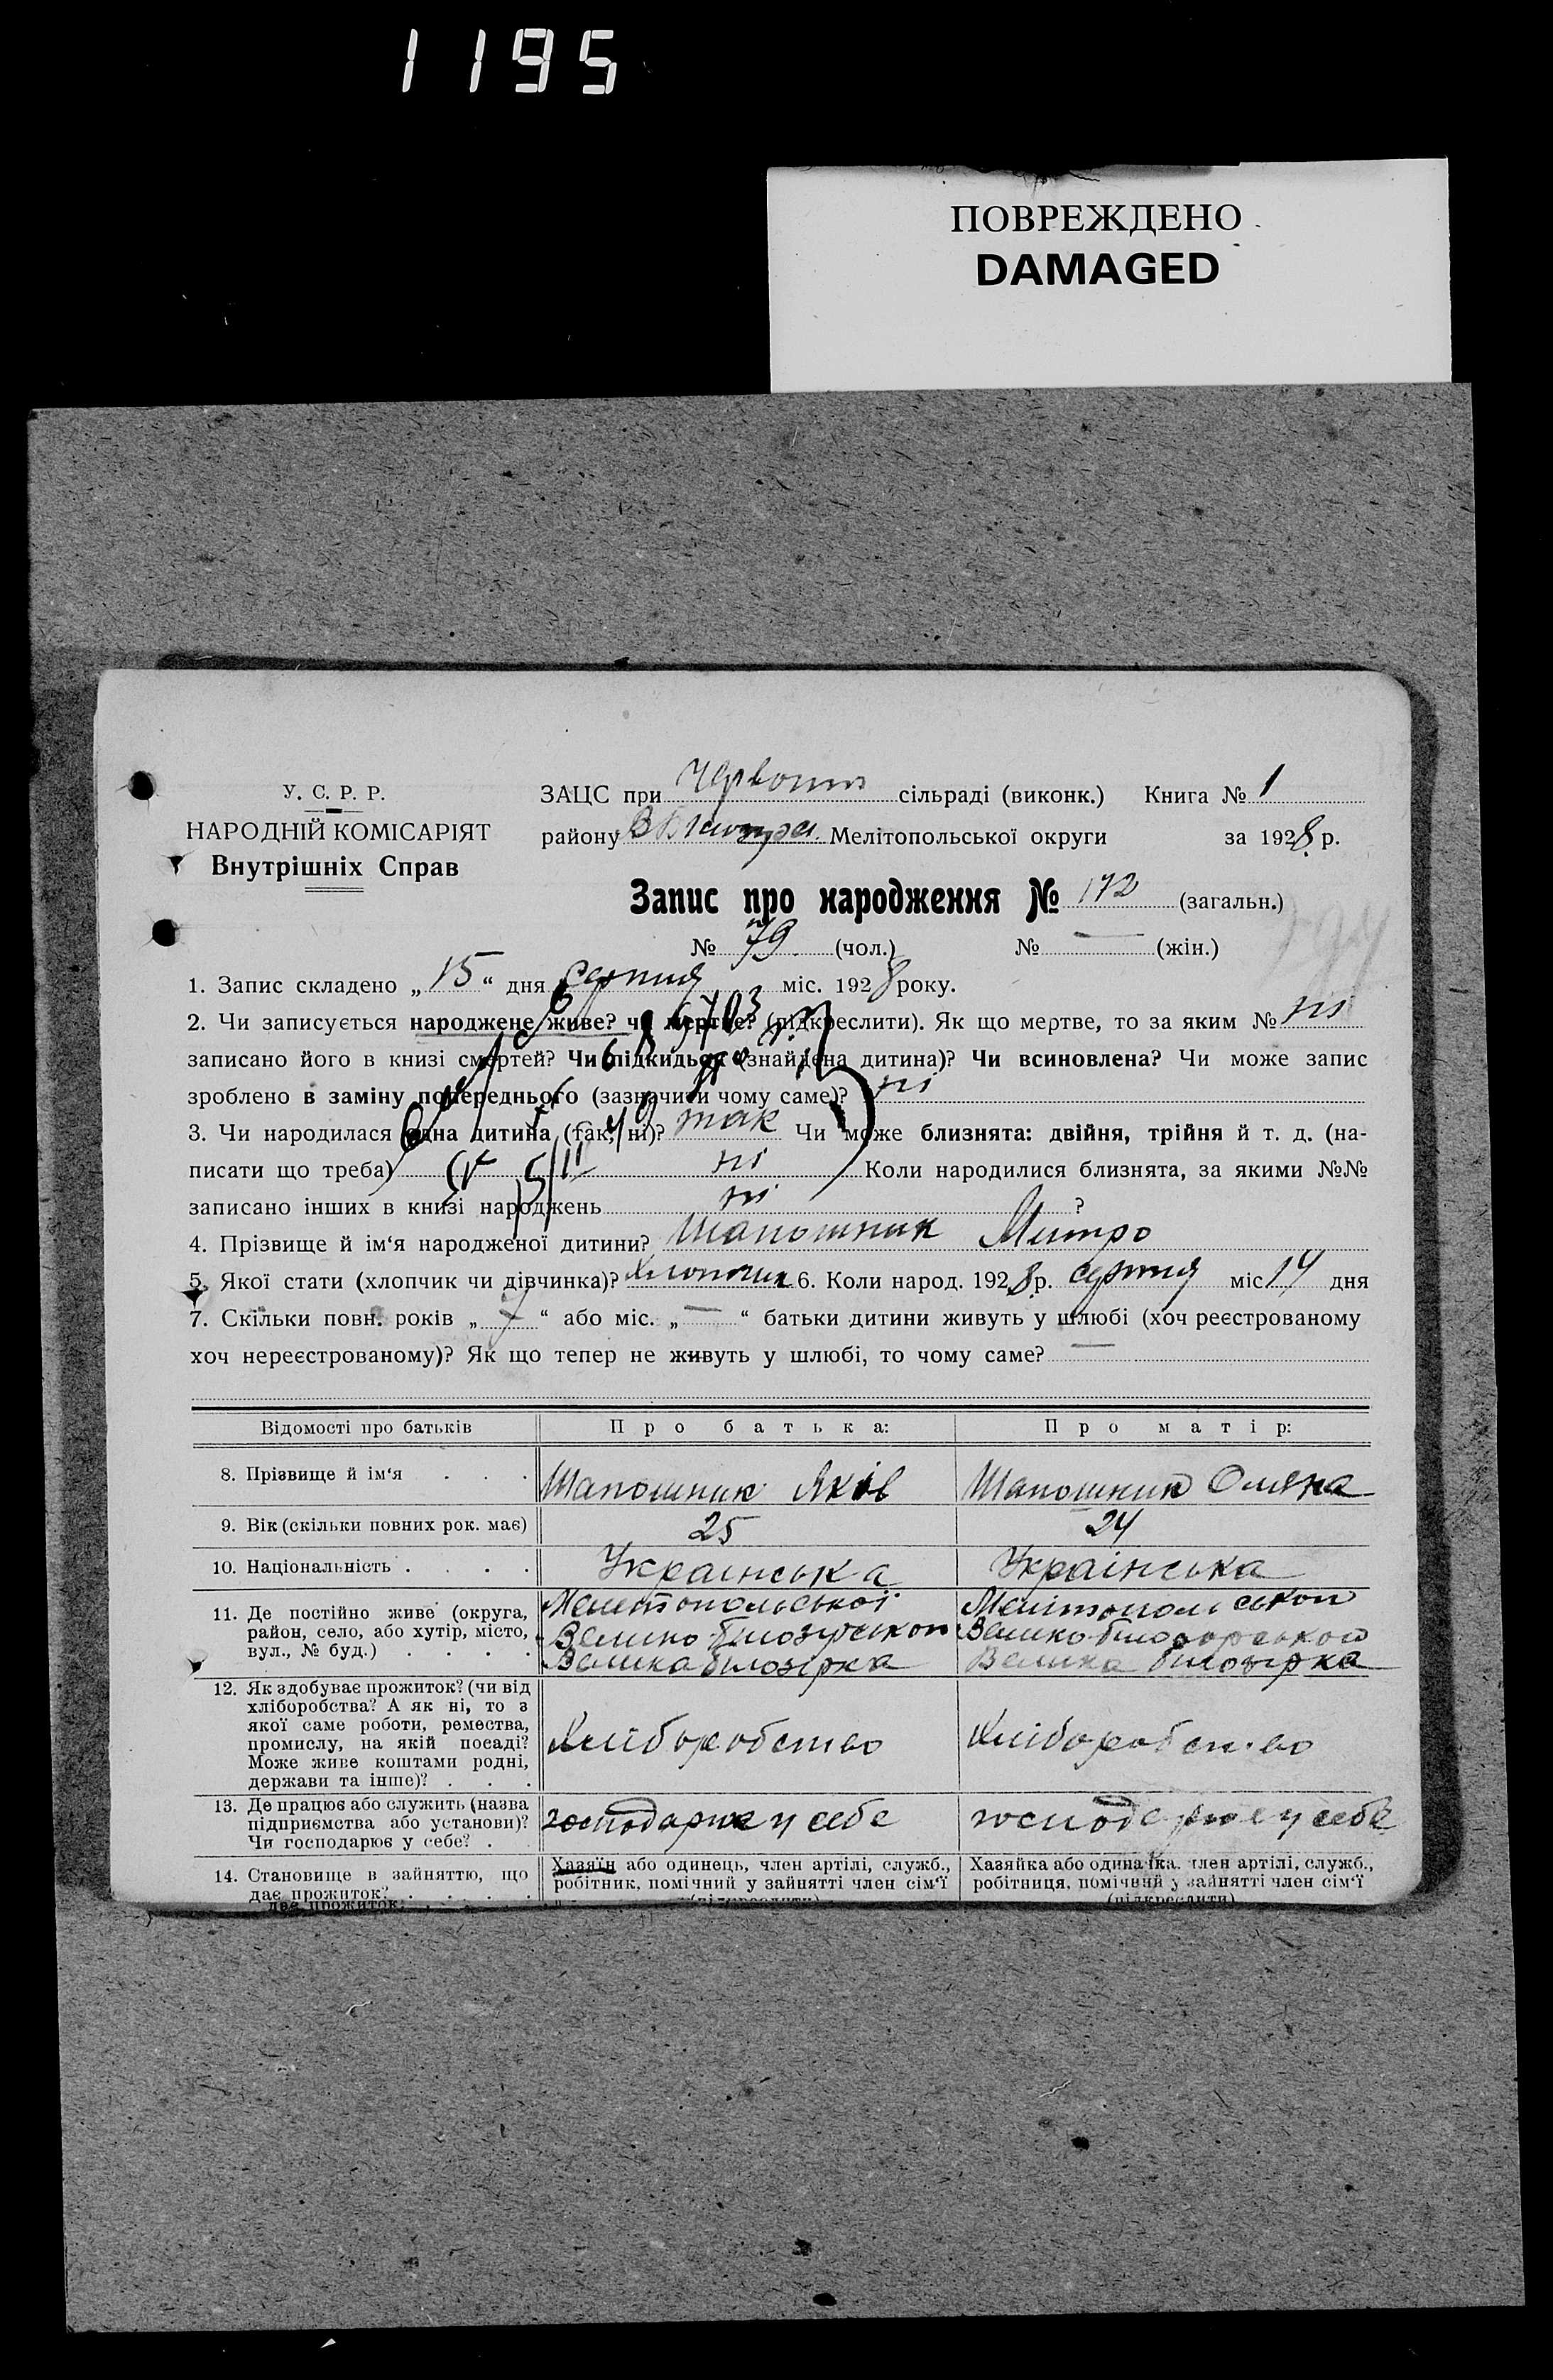 1195
ПОВРЕЖДЕНО
DAMAGED
У. С. Р. Р.
НАРОДНІЙ КОМІСАРІЯТ
Внутрішніх Справ
ЗАЦС при сільраді (виконк.) Книга № 1
району Мелітопольської округи за 1928 р.
Запис про народження № 172 (загальн.)
№ 79 (чол.) № — (жін.)
1. Запис складено „15“ дня серпня міс. 1928 року.
2. Чи записується народжене живе? чи мертве? (підкреслити). Як що мертве, то за яким № ні
записано його в книзі смертей? Чи підкидьок (знайдена дитина)? Чи всиновлена? Чи може запис
зроблено в заміну попереднього (зазначити чому саме)? ні
3. Чи народилася одна дитина (так, ні)? так Чи може близнята: двійня, трійня й т. д. (на-
писати що треба) ні Коли народилися близнята, за якими №№
записано інших в книзі народжень ні ?
4. Прізвище й ім‘я народженої дитини? Шапошник Митро
5. Якої стати (хлопчик чи дівчинка)? хлопчик 6. Коли народ. 1928 р. серпня міс 14 дня
7. Скільки повн. років „ “ або міс. „—“ батьки дитини живуть у шлюбі (хоч реєстрованому
хоч нереєстрованому)? Як що тепер не живуть у шлюбі, то чому саме? —
Відомості про батьків Про батька: Про матір:
8. Прізвище й ім‘я . . . Шапошник Яків Шапошник Оляна
9. Вік (скільки повних рок. має) 25 24
10. Національність . . . . Українська Українська
11. Де постійно живе (округа, Мелітопольської Мелітопольской
район, село, або хутір, місто, Велико-білозурской Велико-білозорской
вул., № буд.) . . . . Велика білозірка Велика білозірка
12. Як здобуває прожиток? (чи від
хліборобства? А як ні, то з
якої саме роботи, ремества,
промислу, на якій посаді? Хліборобство Хліборобство
Може живе коштами родні,
держави та інше)? . . .
13. Де працює або служить (назва
підприємства або установи)? господарює у себе господарює у себе
Чи господарює у себе? .
14. Становище в зайняттю, що Хазяїн або одинець, член артілі, служб., Хазяйка або одиначка, член артілі, служб.,
дає прожиток? . . . . робітник, помічний у зайнятті член сім‘ї робітниця, помічний у зайнятті член сім‘ї
(підкреслити) (підкреслити)